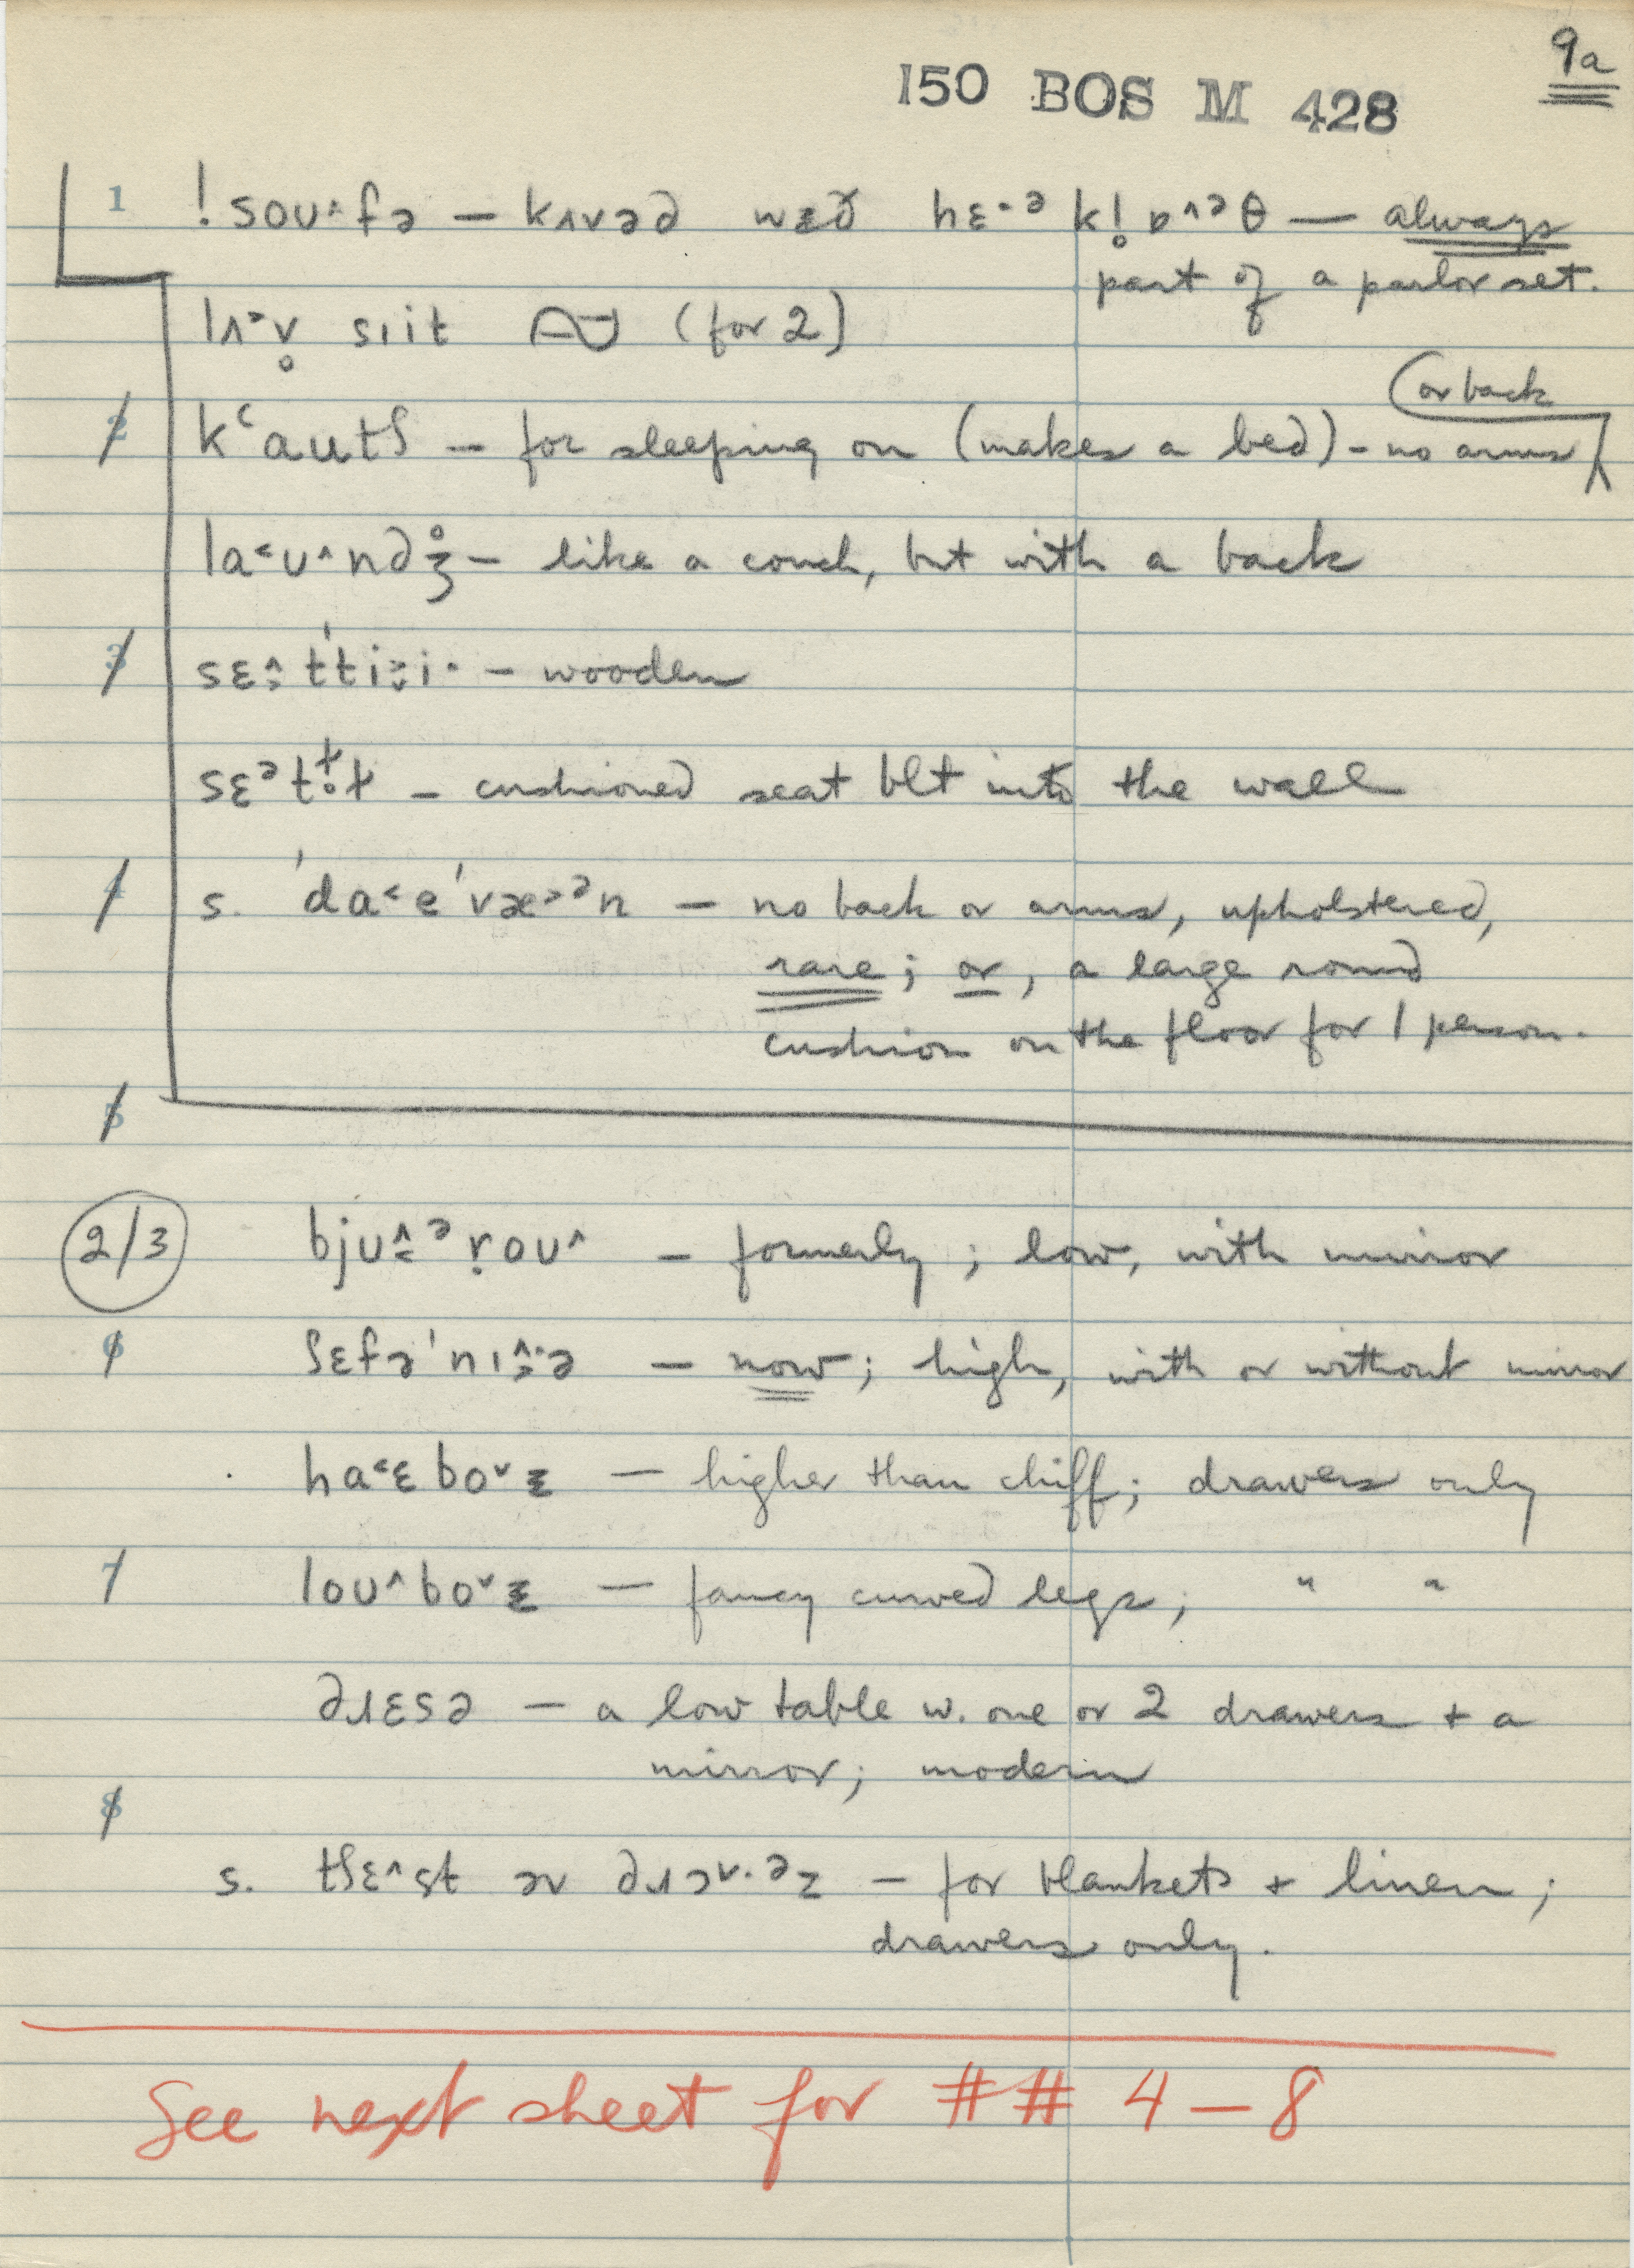 9a
150 BOS M 428
1 !soʊ˄fə — kʌvəd wɪð hɛ·ᵊ k!ɒ˄ᵊθ — always
part of a parlor set.
lʌ˃v̥ sıit (for 2)
(or back
2 kʻautʃ — for sleeping on (makes a bed) – no arms
la˂ʊ˄ndʒ̊ — like a couch, but with a back
3 — wooden
— cushioned seat blt into the wall
4 s. ˈda˂eˈvæ˃ᵊn — no back or arms, upholstered,
rare; or, a large round
cushion on the floor for 1 person.
5
2/3 — formerly; low, with mirror
6 ʃɛfəˈnɪ — now; high, with or without mirror
ha˂ɛbo˅ɪ — higher than chiff; drawers only
7 loʊ˄bo˅ɪ — fancy curved legs; " "
dɹɛsə — a low table w. one or 2 drawers + a
mirror; modern
8
s. tʃɛ˄st əv dɹɔ˅·ᵊz — for blankets + linen;
drawers only.
See next sheet for ## 4–8